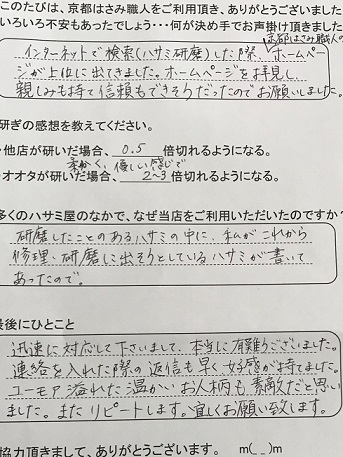 このたびは、京都はさみ職人をご利用頂き、ありがとうございました
いろいろ不安もあったでしょう・・・何が決め手でお声掛け頂きました
京都はさみ職人の
インターネットで検索(ハサミ研磨)した際、ホームペー
ジが上位に出てきました。ホームページを拝見し
親しみも持て信頼もできそうだったのでお願いしました。
研ぎの感想を教えてください。
・他店が研いだ場合、0.5倍切れるようになる。
柔かく、優しい感じで
・オオタが研いだ場合、2〜3倍切れるようになる。
多くのハサミ屋のなかで、なぜ当店をご利用いただいたのですか?
研磨したことのあるハサミの中に、私がこれから
修理、研磨に出そうとしているハサミが書いて
あったので。
最後にひとこと
迅速に対応して下さいまして、本当に有難うございました。
連絡を入れた際の返信も早く好感が持てました。
ユーモア溢れた温かいお人柄も素敵だと思い
ました。またリピートします。宜しくお願い致します。
協力頂きまして、ありがとうございます。 m(_)m